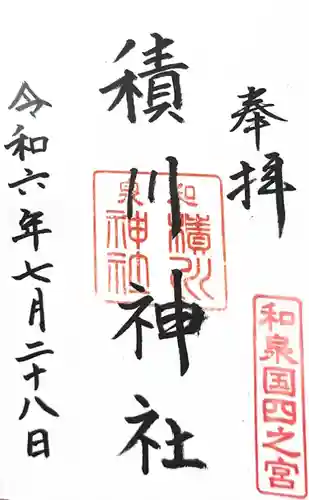 奉拝
和泉国四之宮
積川神社
和泉
積川
神社
令和六年七月二十八日